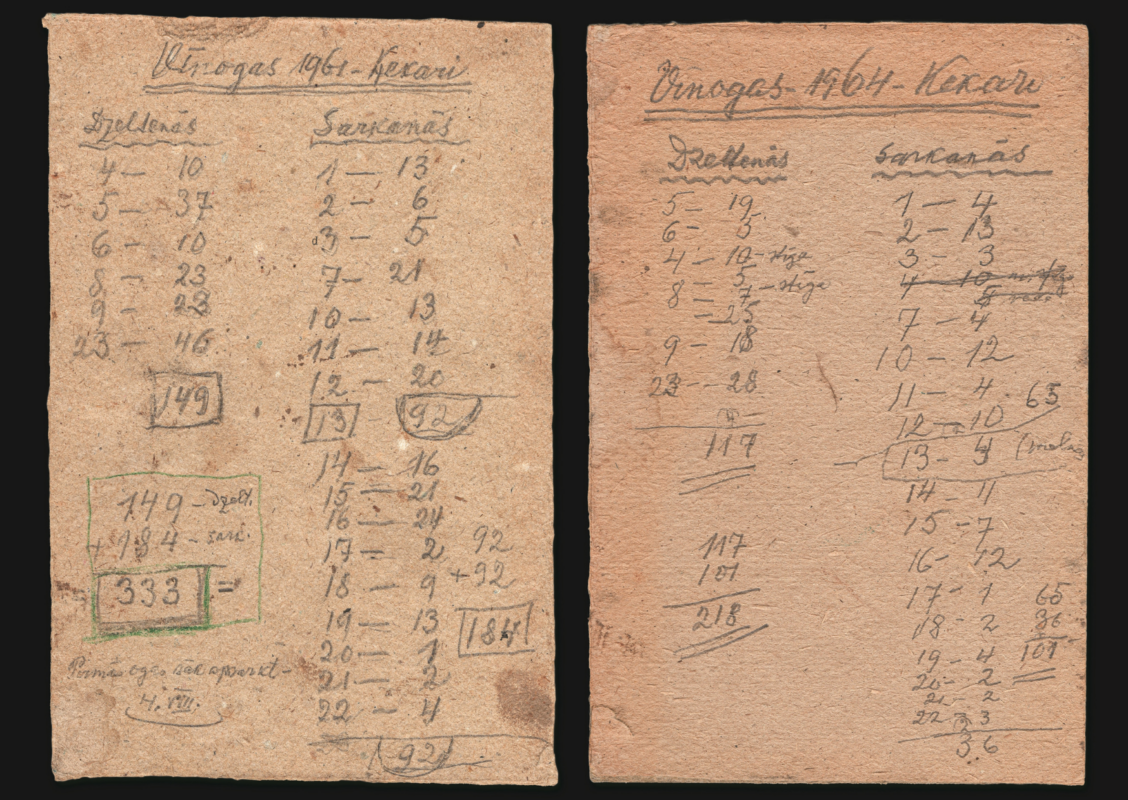 Vīnogas 1961 - Ķekari
Dzeltenās
4 — 10
5 — 37
6 — 10
8 — 23
9 — 23
23 — 46
149
149 - dzelt.
+ 184 - sark.
333 =
Pirmās ogas sāk
4. VIII.
Sarkanās
1 — 13
2 — 6
3 — 5
7 — 21
10 — 13
11 — 14
12 — 20
13 — 92
14 — 16
15 — 21
16 — 24
17 — 2
18 — 9
19 — 13
20 — 1
21 — 2
22 — 4
92
92
+92
184
Vīnogas - 1964 - Ķekari
Dzeltenās
5 — 19
6 — 5
4 — 10 - stīga
5
8 — 7 - stīga
— 25
9 — 18
23 — 28
117
117
101
218
Sarkanās
1 — 4
2 — 13
3 — 3
4 — 10
7 — 4
10 — 12
11 — 4
12 — 10
65
13 — 4
14 — 4
15 — 7
16 — 12
17 — 1
18 — 2
19 — 4
20 — 2
21 — 2
22 — 3
36
65
36
101